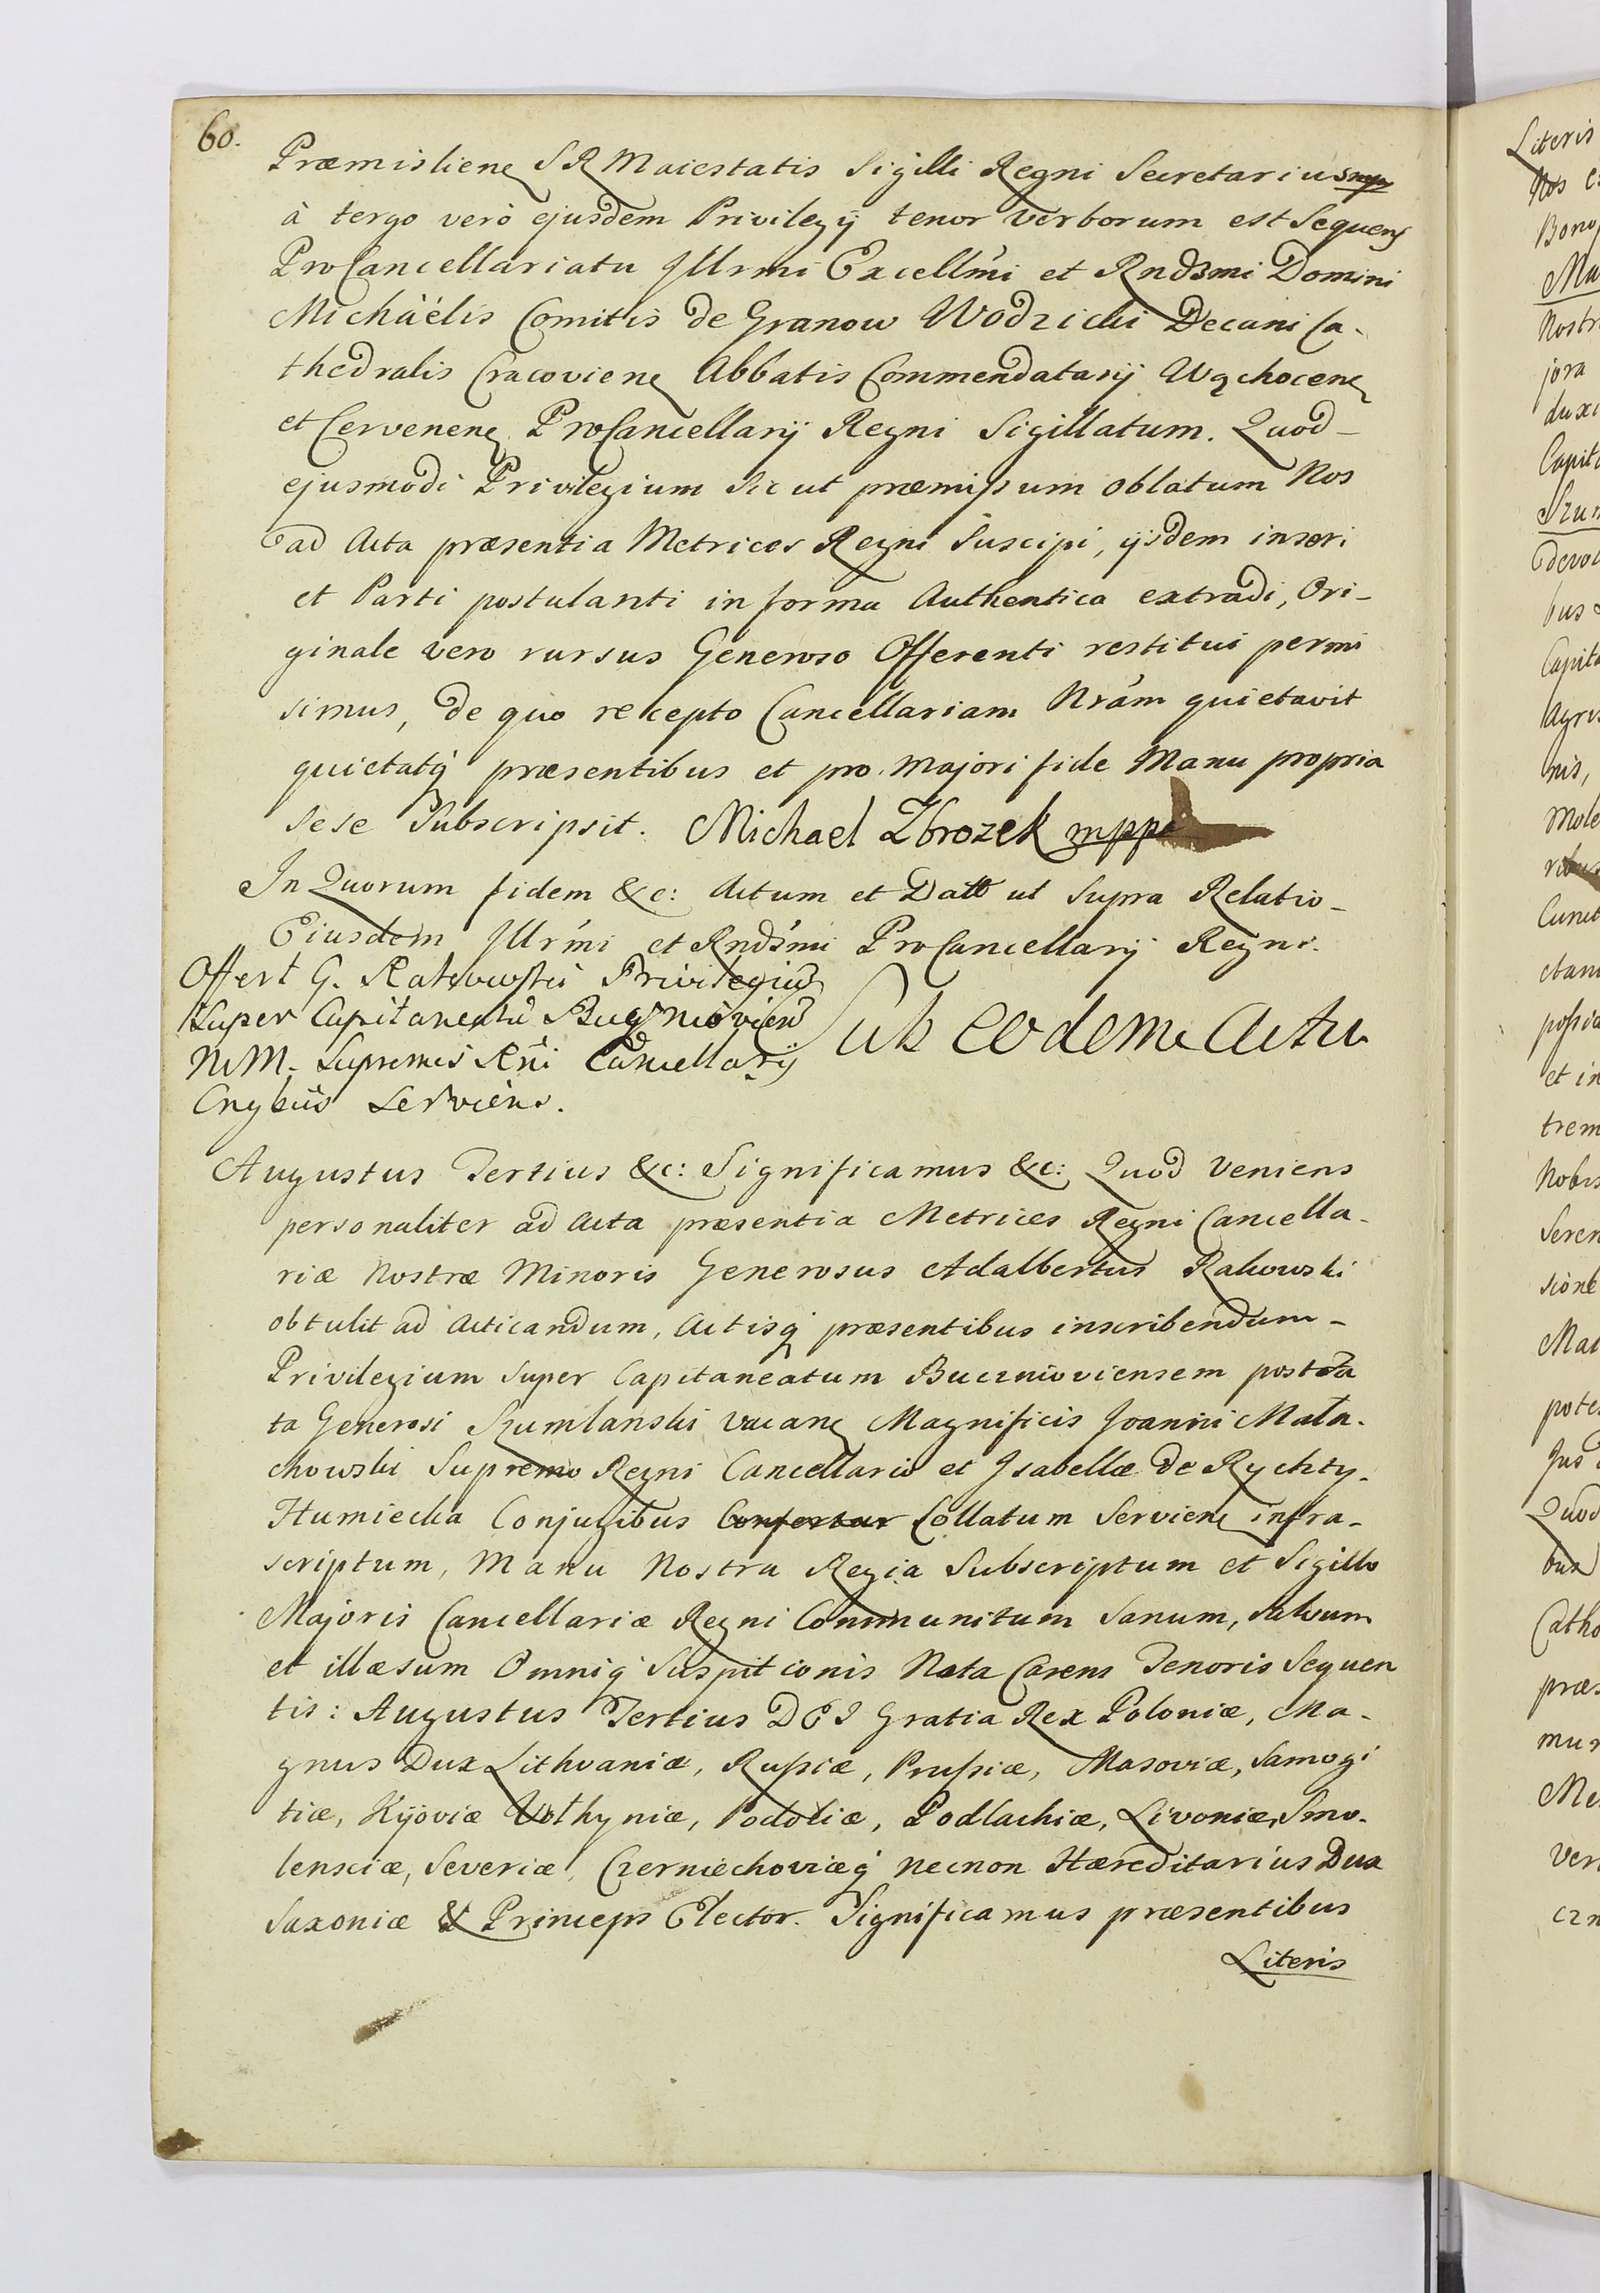 60.
Præmisliens S R Maiestatis Sigilli Regni Secretarius mp
à tergo verò ejusdem Privilegij tenor Verborum est Sequens
ProCancellariatu Illrmi Excellmi et Rndsmi Domini
Michäélis Comitis de Granow Wodzicki Decani Ca-
thedralis Cracoviens Abbatis Commendatarij Wąchocens
et Cervenens ProCancellarij Regni Sigillatum. Quod-
ejusmodi Privilegium sic ut præmissum oblatum Nos
ad Acta præsentia Metrices Regni Suscipi, ijsdem inseri
et Parti postulanti in forma Authentica extradi, Ori-
ginale vero rursus Generoso Offerenti restitui permi
simus, de quo recepto Cancellariam Nram quietavit
quietatq præsentibus et pro majori fide Manu propria
sese Subscripsit. Michael Zbrozek mppa
In Quorum fidem &c: Actum et Datt ut Supra Relatio-
Eiusdem Illrmi et Rndsmi ProCancellarij Regni.
Offert G. Rakowski Privilegiu
Super Capitaneatu Buczniovien
MM. Supremis Rni Cancellarij
Cngbus Serviens.
Sub eodem Actu
Augustus Tertius &c: Significamus &c: Quod Veniens
personaliter ad Acta præsentia Metrices Regni Cancella-
riæ Nostræ Minoris Generosus Adalbertus Rakowski
obtulit ad Acticandum, Actisq præsentibus inscribendum-
Privilegium Super Capitaneatum Bucznioviensem post fa
ta Generosi Szumlanski Vacans Magnificis Joanni Mała-
chowski Supremo Regni Cancellario et Isabellæ de Rychty-
Humiecka Conjugibus Confertur Collatum Serviens infra-
scriptum, Manu Nostra Regia Subscriptum et Sigillo
Majoris Cancellariæ Regni Communitum Sanum, Salvum
et illæsum Omniq Suspitionis Nota Carens Tenoris Sequen
tis: Augustus Tertius DEI Gratia Rex Poloniæ, Ma-
gnus Dux Lithvaniæ, Russiæ, Prussiæ, Masoviæ, Samogi
tiæ, Kijoviæ Vothyniæ, Podoliæ, Podlachiæ, Livoniæ, Smo-
lensciæ, Severiæ, Czerniechoviæq necnon Hæreditarius Dux
Saxoniæ & Princeps Elector. Significamus præsentibus
Literis
Literis
Nos
Bono
Nostr
jora
duxi
Capit
Szum
devol
bus
Capit
Agris
nis,
Mole
Cunct
possi
et in
trem
Nobis
Seren
sione
pote
Jus
Quod
Catho
præs
mur